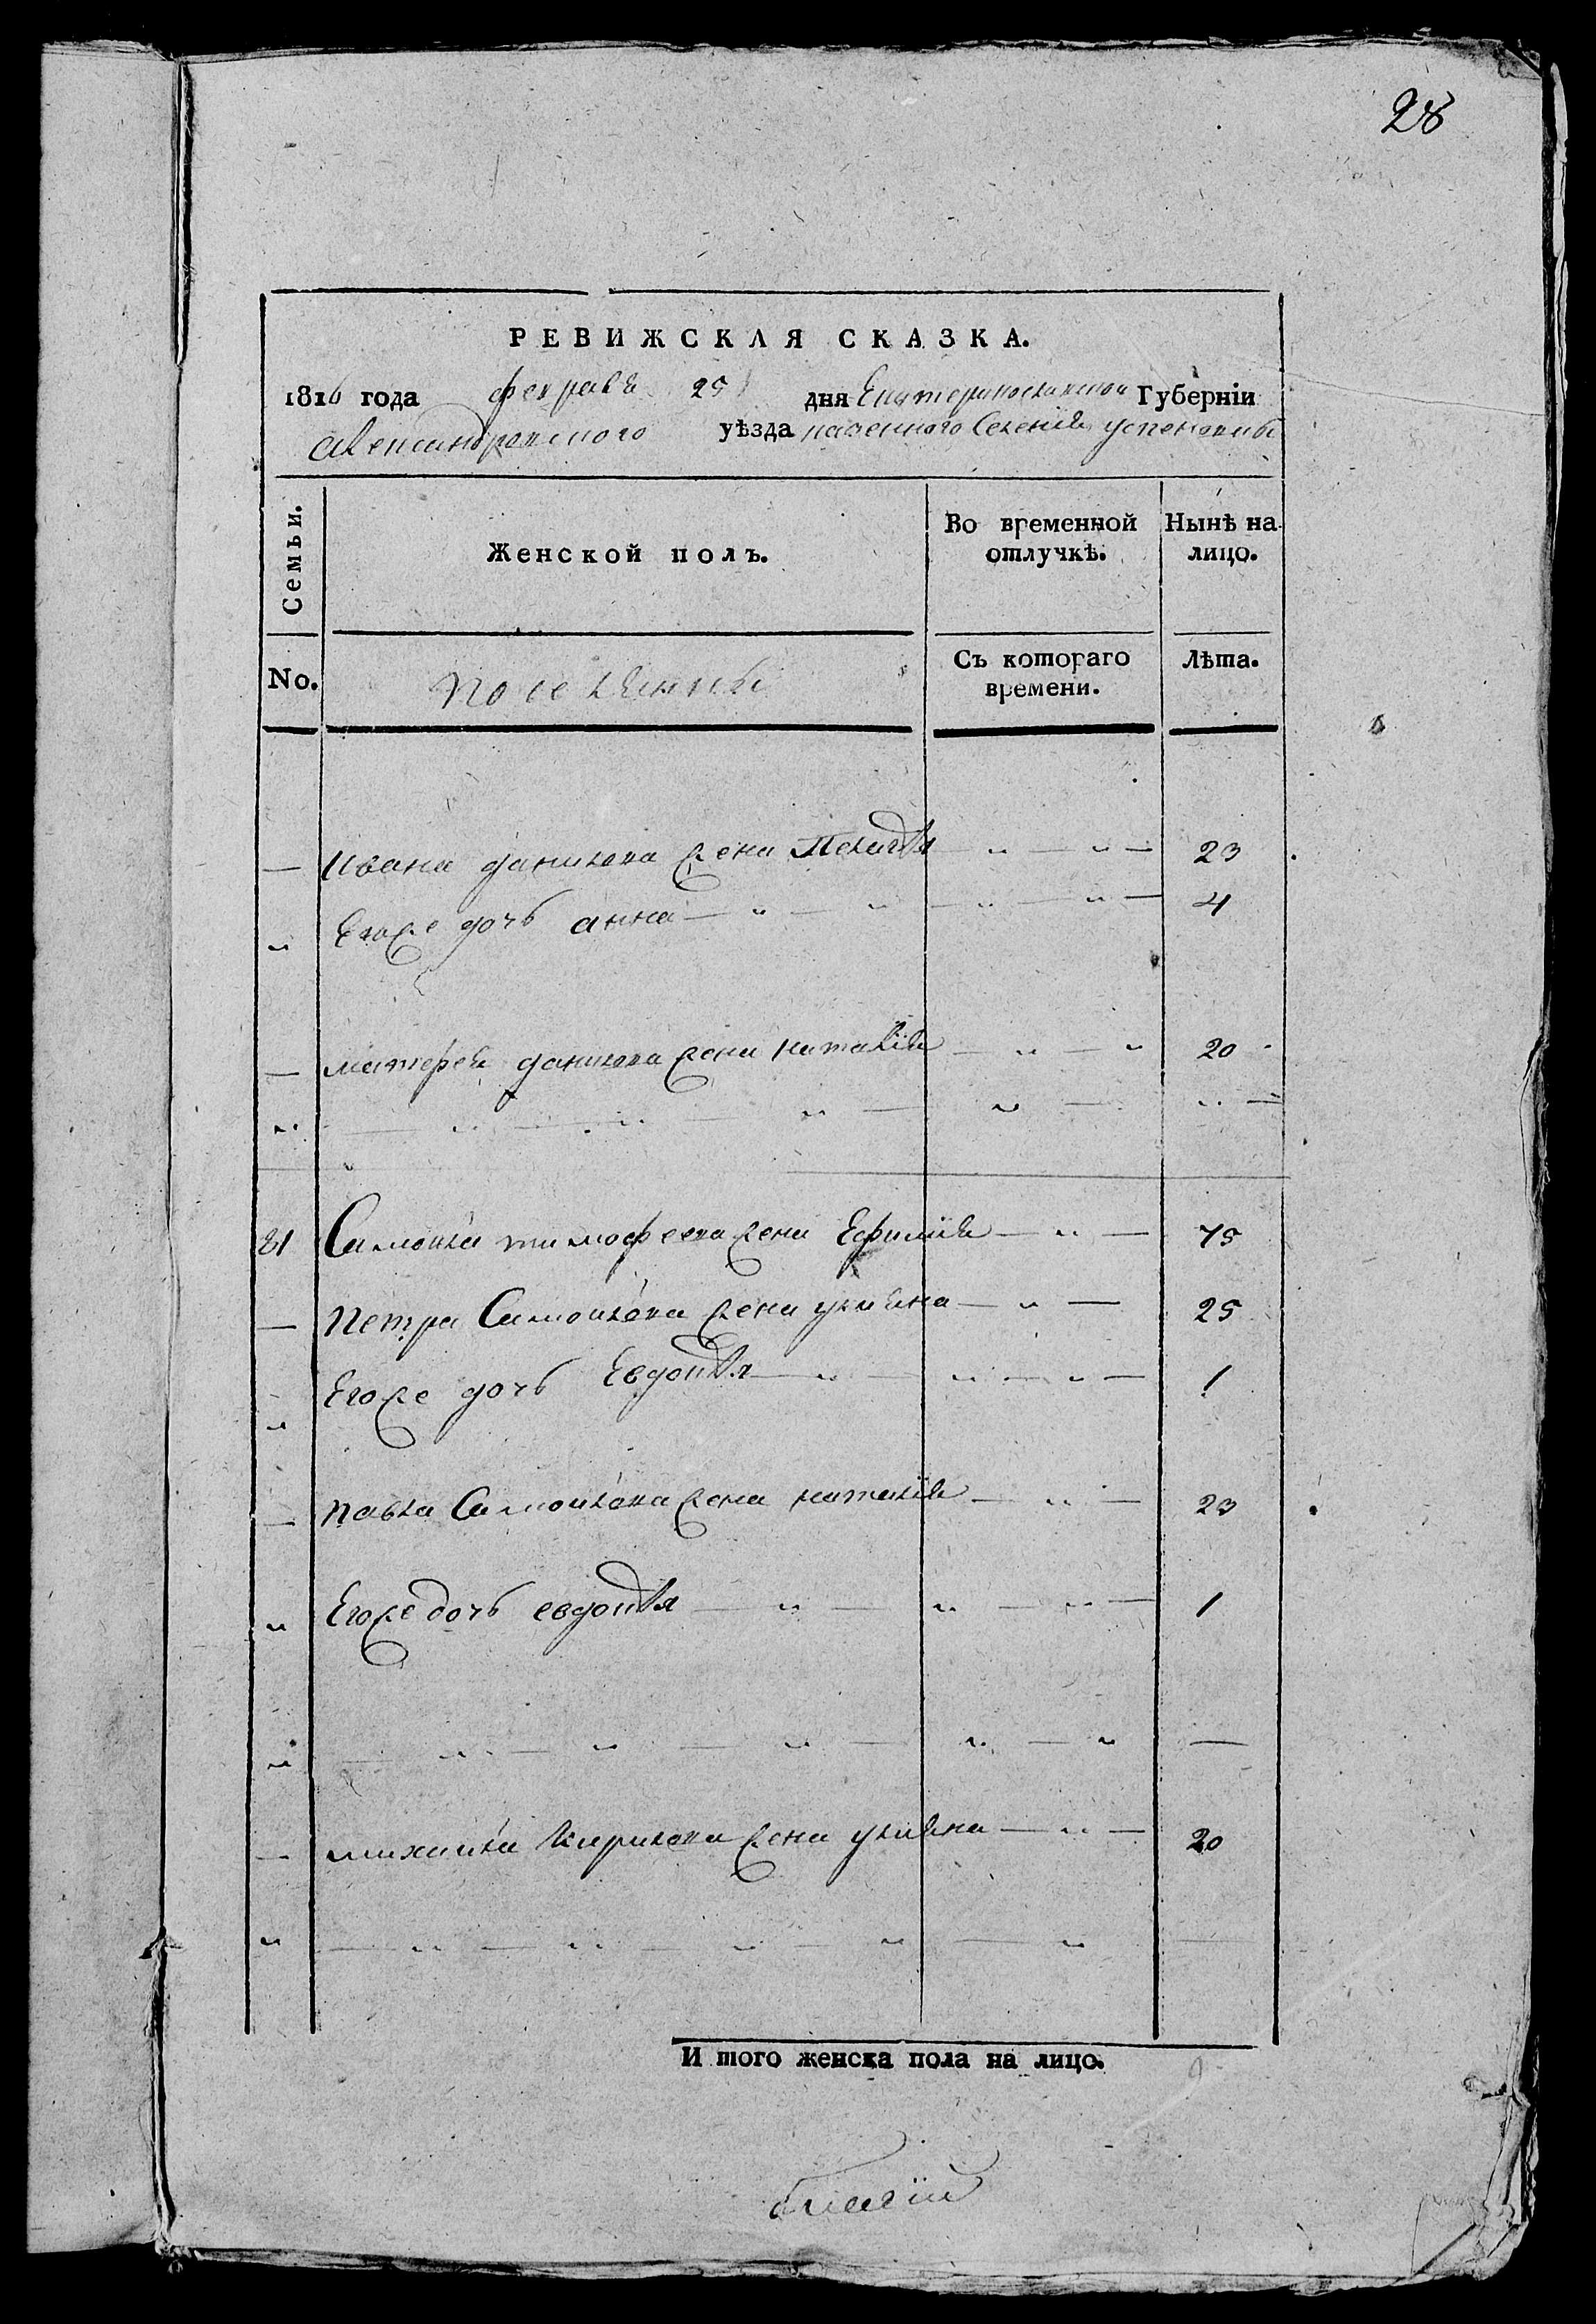 28
РЕВИЖСКАЯ СКАЗКА.
1816 года февраля 25 дня Екатеринославской Губерніи
Александровского уѣзда казенного Селенія успеновки
Семьи.
Женской полъ.
Во временной отлучкѣ.
Нынѣ на лицо.
No.
поселянки
Съ котораго времени.
Лѣта.
— Ивана данилова жена Пелагѣя — „ — „ — 23
„ Егоже дочь анна — „ — „ — „ — „ — 4
— матфея данилова жена наталія — „ — „ 20
„ — „ — „ — „ — „ — „ —
21 Самойла тимофеева жена Ефимія — „ — 75
— Петра Самойлова жена улияна — „ — 25
„ Егоже дочь Евдокѣя — „ — „ — „ — 1
— павла Самойлова жена наталія — „ — 23
„ Егоже дочь евдокѣя — „ — „ — „ — 1
„ — „ — „ — „ — „ — „ —
— михайла Кирилова жена улияна — „ — 20
„ — „ — „ — „ — „ — „ —
И того женска пола на лицо. 9